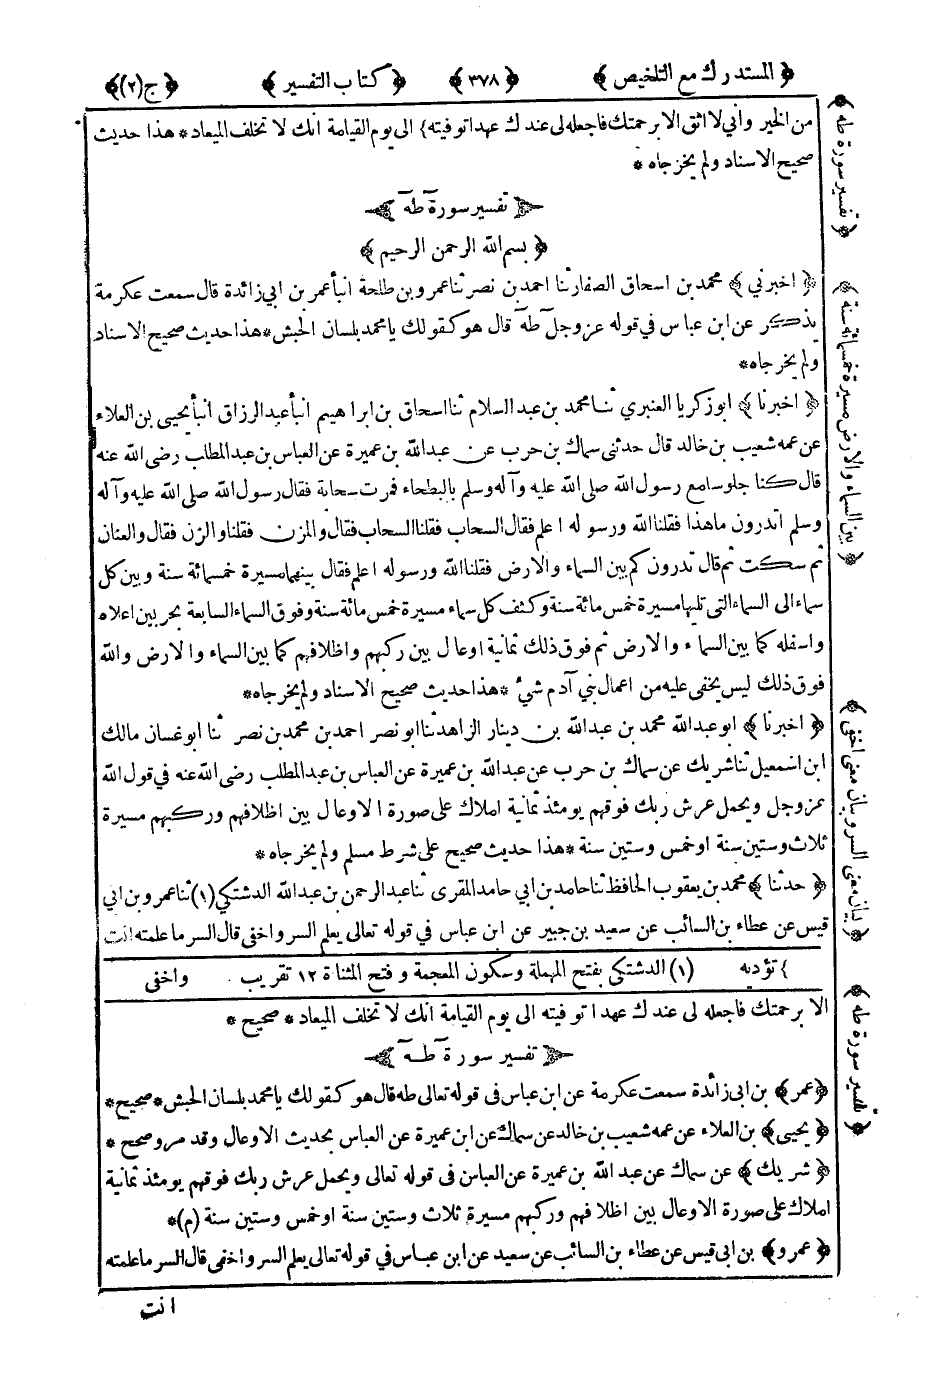 ﴿ المستدرك مع التلخيص ﴾ ﴿ ٣٧٨ ﴾ ﴿ كتاب التفسير ﴾ ﴿ ج (٢) ﴾
من الخير وأني لا اثق الا برحمتك فاجعله لى عندك عهدا توفيته} الى يوم القيامة انك لا تخلف الميعاد * هذا حديث
صحيح الاسناد ولم يخرجاه *
تفسير سورة طه
﴿ بسم الله الرحمن الرحيم ﴾
﴿ اخبرني ﴾ محمد بن اسحاق الصفار ثنا احمد بن نصر ثنا عمرو بن طلحة انبأ عمر بن ابي زائدة قال سمعت عكرمة
يذكر عن ابن عباس في قوله عزوجل طه قال هو كقولك يا محمد بلسان الحبش * هذا حديث صحيح الاسناد
ولم يخرجاه *
﴿ اخبرنا ﴾ ابو زكريا العنبري ثنا محمد بن عبد السلام ثنا اسحاق بن ابراهيم انبأ عبد الرزاق انبأ يحيى بن العلاء
عن عمه شعيب بن خالد قال حدثنى سماك بن حرب عن عبد الله بن عميرة عن العباس بن عبد المطلب رضى الله عنه
قال كنا جلوسا مع رسول الله صلى الله عليه وآله وسلم بالبطحاء فمرت سحابة فقال رسول الله صلى الله عليه وآله
وسلم اتدرون ما هذا فقلنا الله ورسوله اعلم فقال السحاب فقلنا السحاب فقال والمزن فقلنا والمزن فقال والعنان
ثم سكت ثم قال تدرون كم بين السماء والارض فقلنا الله ورسوله اعلم فقال بينهما مسيرة خمسمائة سنة وبين كل
سماء الى السماء التى تليها مسيرة خمس مائة سنة وكثف كل سماء مسيرة خمس مائة سنة وفوق السماء السابعة بحر بين اعلاه
واسفله كما بين السماء والارض ثم فوق ذلك ثمانية اوعال بين ركبهم واظلافهم كما بين السماء والارض والله
فوق ذلك ليس يخفى عليه من اعمال بني آدم شيء * هذا حديث صحيح الاسناد ولم يخرجاه *
﴿ اخبرنا ﴾ ابو عبد الله محمد بن عبد الله بن دينار الزاهد ثنا ابو نصر احمد بن محمد بن نصر ثنا ابو غسان مالك
ابن اسمعيل ثنا شريك عن سماك بن حرب عن عبد الله بن عميرة عن العباس بن عبد المطلب رضى الله عنه في قول الله
عز وجل ويحمل عرش ربك فوقهم يومئذ ثمانية املاك على صورة الاوعال بين اظلافهم وركبهم مسيرة
ثلاث وستين سنة او خمس وستين سنة * هذا حديث صحيح على شرط مسلم ولم يخرجاه *
﴿ حدثنا ﴾ محمد بن يعقوب الحافظ ثنا حامد بن ابي حامد المقرى ثنا عبد الرحمن بن عبد الله الدشتكي (١) ثنا عمرو بن ابي
قيس عن عطاء بن السائب عن سعيد بن جبير عن ابن عباس في قوله تعالى يعلم السر واخفى قال السر ما علمته انت
} تؤديه (١) الدشتكي بفتح المهملة وسكون المعجمة وفتح المثناة ١٢ تقريب . واخفى
الا برحمتك فاجعله لى عندك عهدا توفيته الى يوم القيامة انك لا تخلف الميعاد * صحيح *
تفسير سورة طه
﴿عمر﴾ بن ابى زائدة سمعت عكرمة عن ابن عباس فى قوله تعالى طه قال هو كقولك يا محمد بلسان الحبش * صحيح *
﴿ يحيى ﴾ بن العلاء عن عمه شعيب بن خالد عن سماك عن ابن عميرة عن العباس بحديث الاوعال وقد مر وصحيح *
﴿ شريك ﴾ عن سماك عن عبد الله بن عميرة عن العباس فى قوله تعالى ويحمل عرش ربك فوقهم يومئذ ثمانية
املاك على صورة الاوعال بين اظلافهم وركبهم مسيرة ثلاث وستين سنة او خمس وستين سنة (م) *
﴿ عمرو ﴾ بن ابى قيس عن عطاء بن السائب عن سعيد عن ابن عباس في قوله تعالى يعلم السر واخفى قال السر ما علمته
انت
﴿ تفسير سورة طه ﴾
﴿ بين السماء والارض مسيرة خمسمائة سنة ﴾
﴿ بيان معنى السر وبيان معنى اخفى ﴾
﴿ تفسير سورة طه ﴾